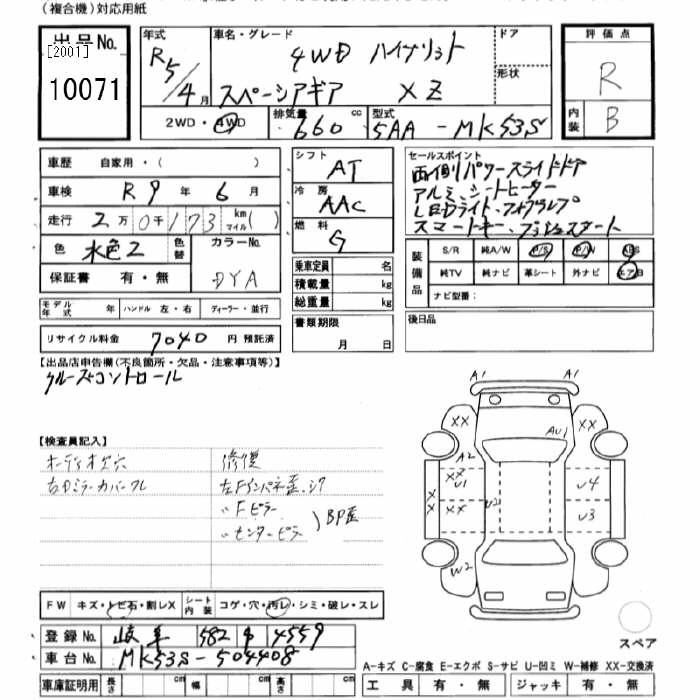 (複合機)対応用紙
出品No.
[2001]
10071
年式
R5/4月
車名・グレード
4WD ハイブリット
スペーシアギア XZ
ドア
形状
評価点
R
内装
B
2WD・4WD
排気量 660 cc
型式 5AA - MK53S
車歴 自家用・( )
車検 R9年 6月
走行 2万0千173 km マイル( )
色 水色2 色替 カラーNo. DYA
保証書 有・無
モデル年式 年 ハンドル 左・右 ディーラー・並行
リサイクル料金 7040 円 預託済
シフト AT
冷房 AAC
燃料 G
乗車定員 名
積載量 kg
総重量 kg
書類期限
月 日
セールスポイント
両側パワースライドドア
アルミ、シートヒーター
LEDライト、フォグランプ
スマートキー、プッシュスタート
装備品
S/R 純A/W P/S P/W ABS
純TV 純ナビ 革シート 外ナビ エアB
ナビ型番:
後日品
【出品店申告欄(不良箇所・欠品・注意事項等)】
クルーズコントロール
【検査員記入】
オーディオ欠穴
右Dミラーカバーワレ
修復
左Fインパネ歪、シワ
〃Fピラー
〃センターピラー
BP歪
A1 A1
XX XX
AU1
A2
XX
U1
XX
X
X
U2
U4
U3
W2
スペア
FW キズ・トビ石・割レX シート内装 コゲ・穴・汚レ・シミ・破レ・スレ
登録No. 岐阜 582 4559
車台No. MK53S-504408
車庫証明用 長さ cm 幅 cm 高さ cm
A-キズ C-腐食 E-エクボ S-サビ U-凹ミ W-補修 XX-交換済
工具 有・無 ジャッキ 有・無